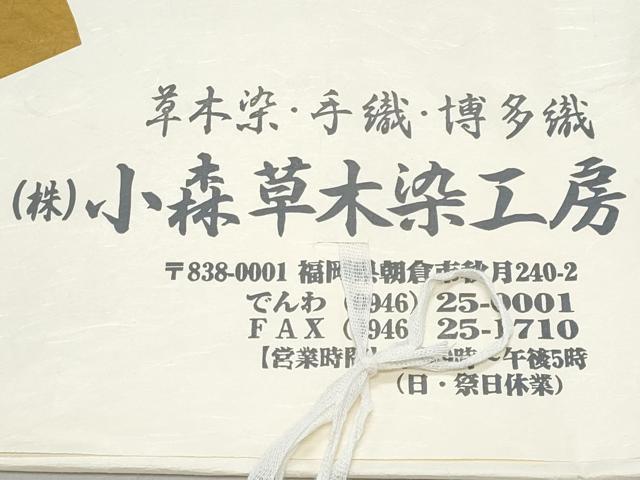 草木染・手織・博多織
(株)小森草木染工房
〒838-0001 福岡県朝倉市秋月240-2
でんわ(0946)25-0001
FAX(0946)25-1710
【営業時間】 時〜午後5時
(日・祭日休業)